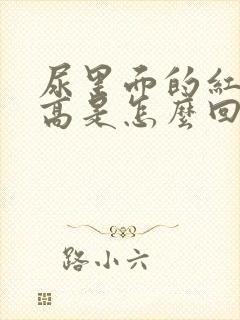 尿里面的红
高是怎么回
路小六